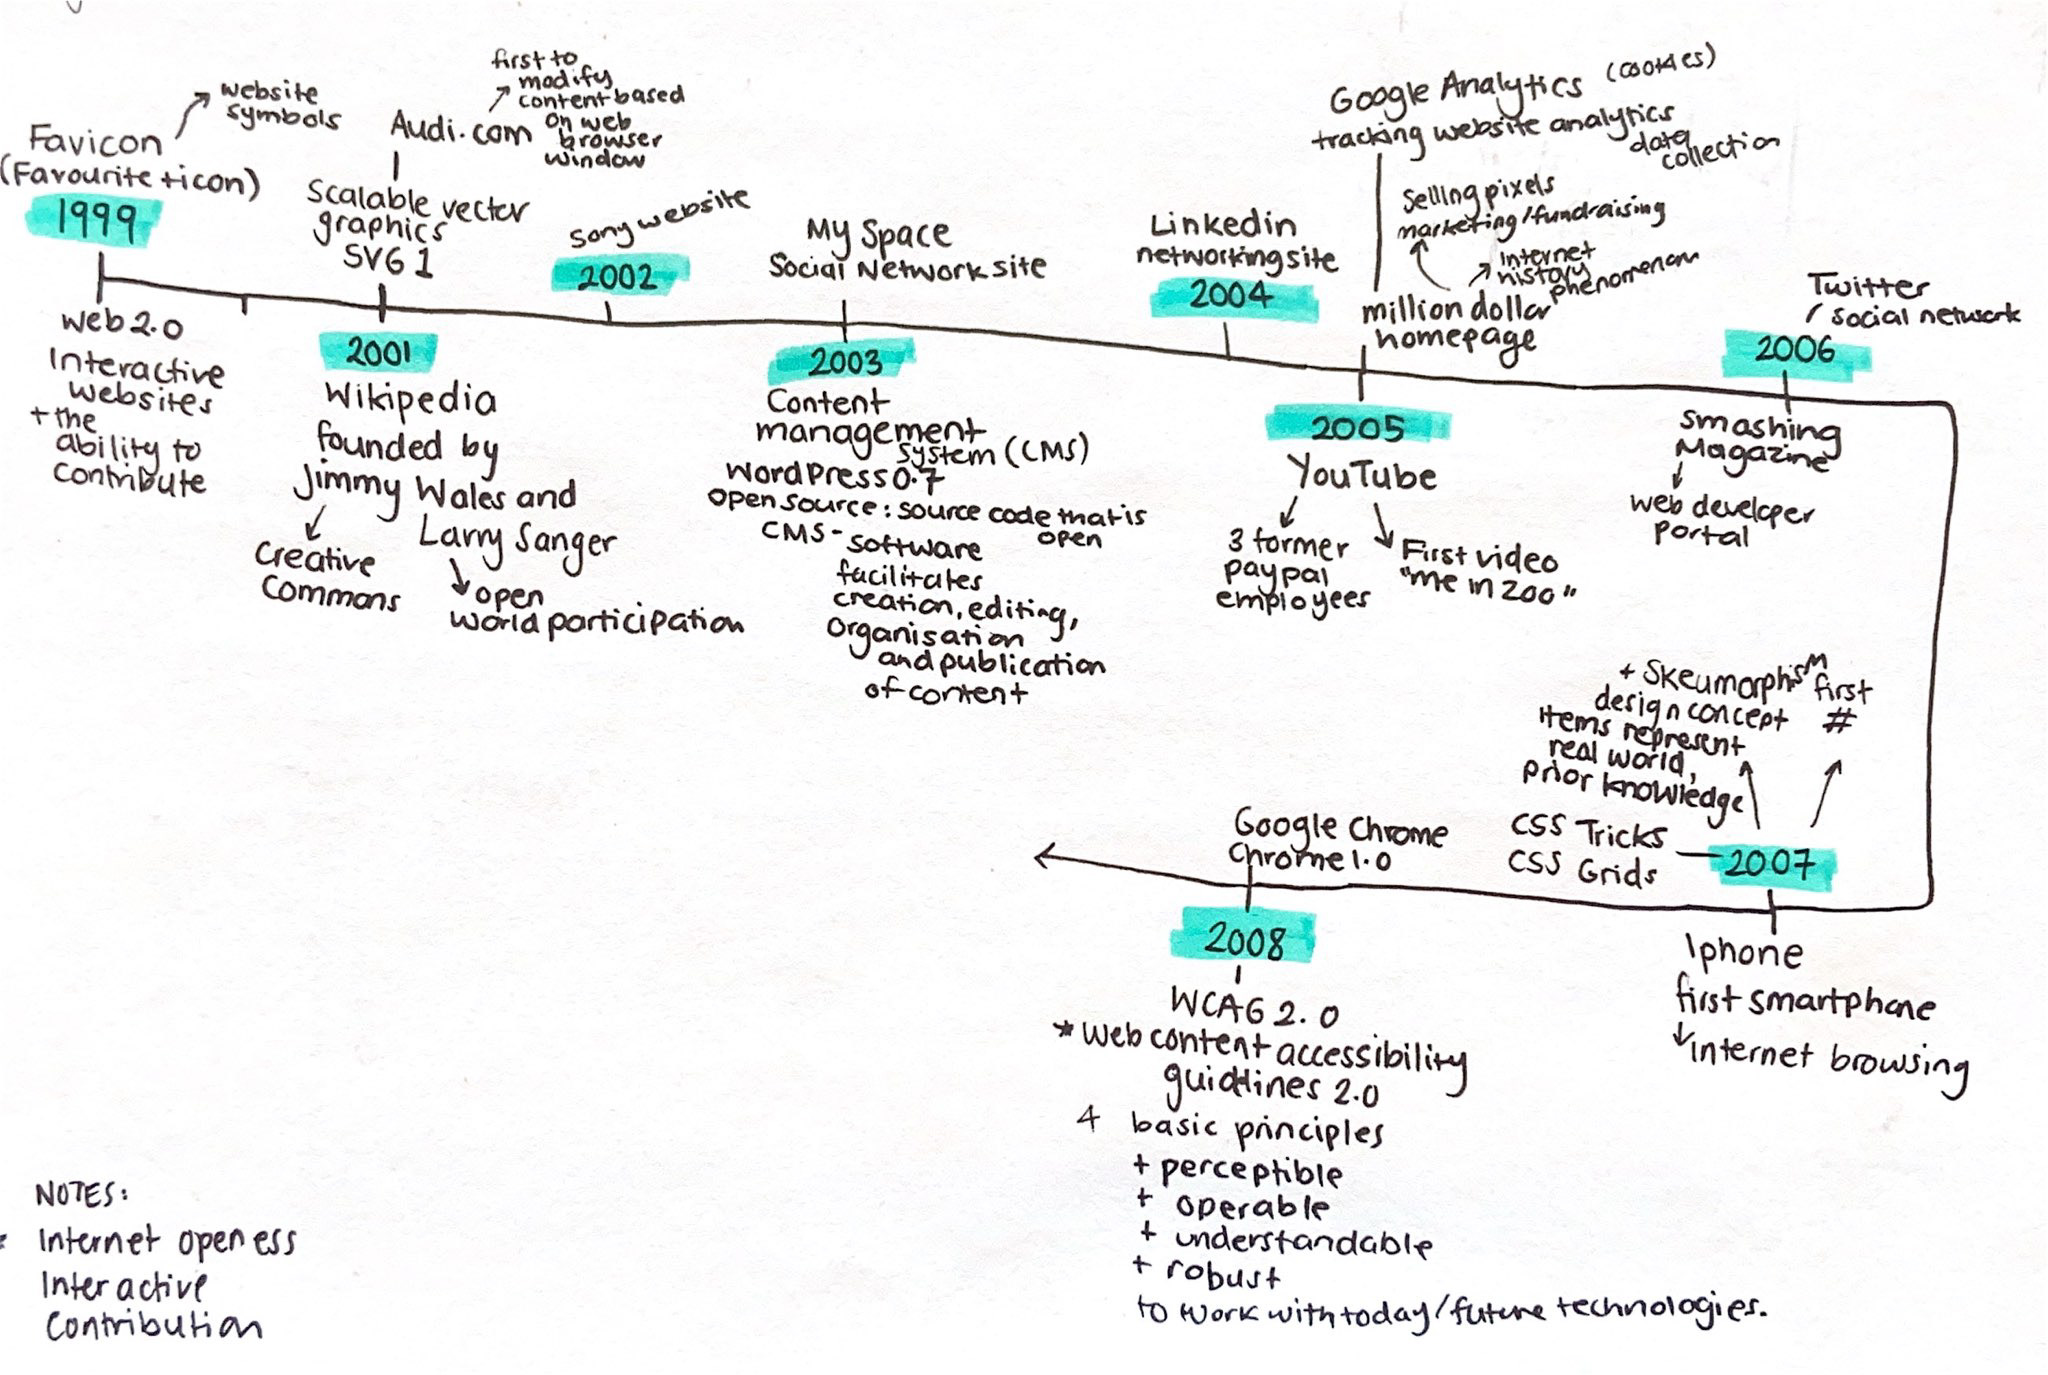 Favicon
(Favourite + icon)
website
symbols
1999
Web 2.0
Interactive
websites
+ the
ability to
contribute
first to
modify
content based
on web
browser
window
Audi.com
Scalable vector
graphics
SVG 1
2001
Wikipedia
founded by
Jimmy Wales and
Larry Sanger
Creative
Commons
open
world participation
Sony website
2002
My Space
Social Network site
2003
Content
management
system (CMS)
WordPress 0.7
open source : source code that is
open
CMS - software
facilitates
creation, editing,
organisation
and publication
of content
Linkedin
networking site
2004
Google Analytics (cookies)
tracking website analytics
data
collection
Selling pixels
marketing/fundraising
Internet
history
phenomenom
million dollar
homepage
2005
YouTube
3 former
paypal
employees
First video
"me in zoo"
Twitter
/ social network
2006
Smashing
Magazine
web developer
portal
+ Skeumorphism
design concept
items represent
real world,
prior knowledge
first
#
CSS Tricks
CSS Grids
2007
Iphone
first smartphone
internet browsing
Google Chrome
Chrome 1.0
2008
WCAG 2.0
* Web content accessibility
guidlines 2.0
4 basic principles
+ perceptible
+ operable
+ understandable
+ robust
to work with today/future technologies.
NOTES:
* Internet openess
Interactive
Contribution